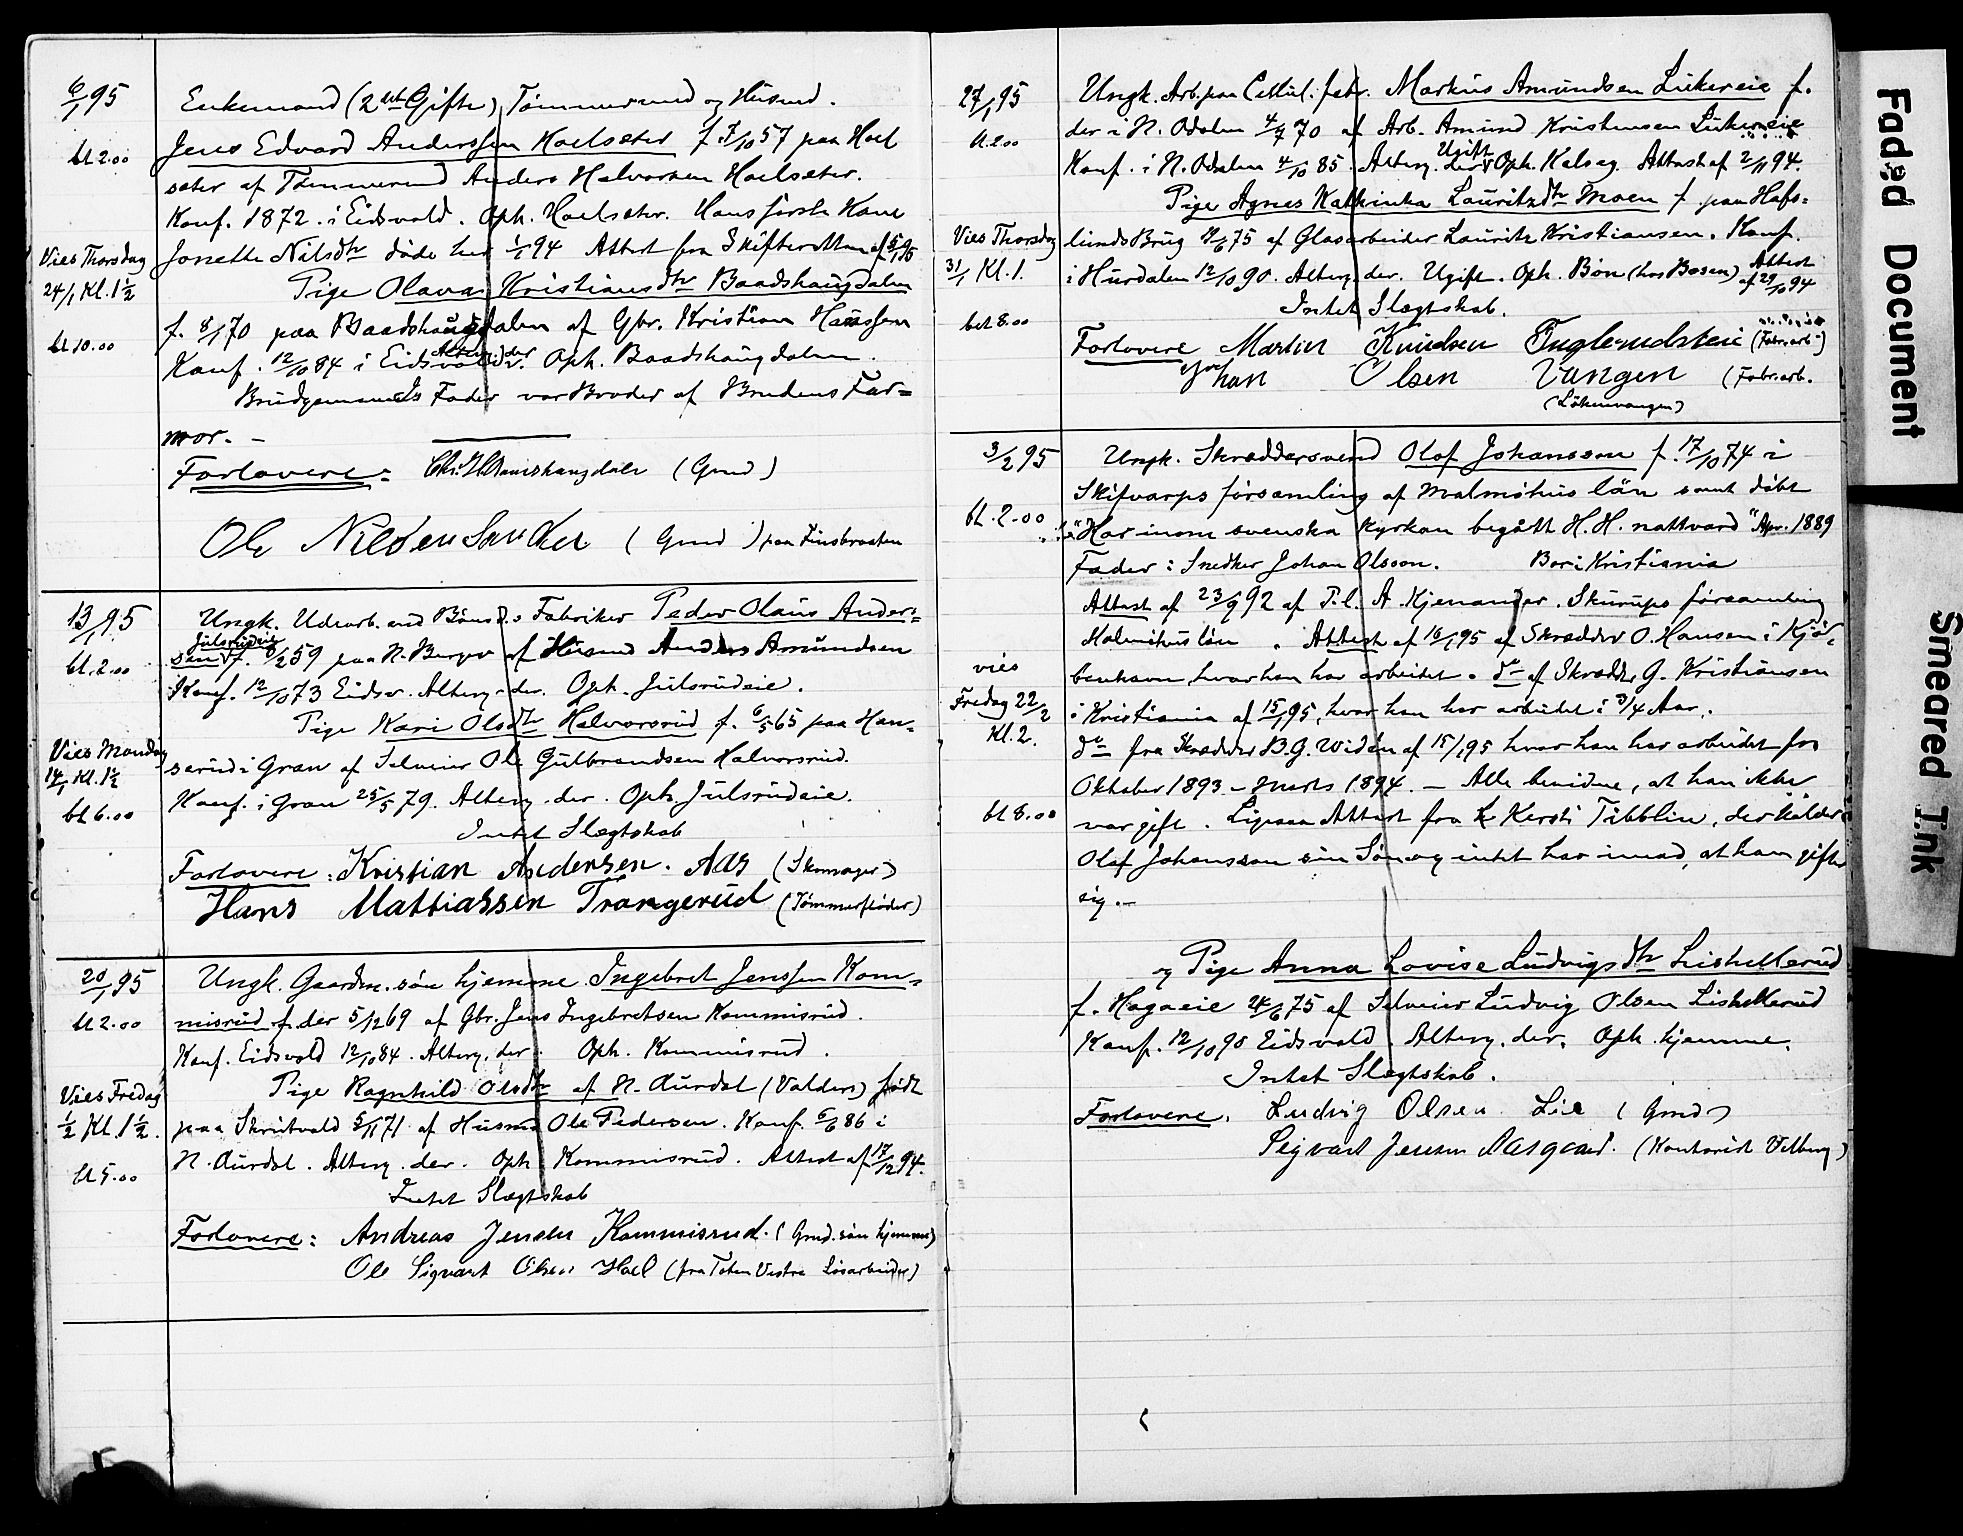 6/1 95
Enkemand (2det Gifte) Tømmermd og Husmd.
bt 2.00
Jens Edvard Anderssen Hoelseter f. 7/10 57 paa Hoel
seter af Tømmermd Anders Halvorsen Hoelseter.
Konf. 1872 i Eidsvold. Oph. Hoelseter. Hans første Kone
Vies Thorsdag
24/1 Kl. 1½
Jonette Nilsdtr døde her 1/1 94 Attest fra Skifteretten af 5/1 95
Pige Olava Kristiansdtr Baadshaugdalen
bt 10.00
f. 8/1 70 paa Baadshaugdalen af Gbr. Kristian Hanssen
Konf. 12/10 84 i Eidsvold. Alterg. der. Oph. Baadshaugdalen.
Brudgommens Fader var Broder af Brudens Far=
mor. –
Forlovere: Chr. H. Baadshaugdalen (Gmd)
Ole Nilsen Sander (Gmd) paa Finsbraaten
13/1 95
Ungk. Udearb. ved Bøns Fabriker Peder Olaus Ander=
bt. 2.00
sen Julsrudeie f. 8/2 59 paa N. Berger af Husmd Anders Amundsen
Konf. 12/10 73 Eidsv. Alterg. der. Oph. Julsrudeie.
Pige Kari Olsdtr Halvorsrud f. 6/5 65 paa Han=
Vies Mandag
14/1 Kl. 1½
serud i Gran af Selveier Ole Gulbrandsen Halvorsrud.
bt 6.00
Konf. i Gran 25/5 79. Alterg. der. Oph. Julsrudeie.
Intet Slægtskab
Forlovere: Kristian Andersen. Aas (Skomager)
Hans Mattiassen Trangerud (Tømmerfløder)
20/1 95
Ungk. Gaardm. søn hjemme Ingebret Jenssen Kom=
bt 2.00
misrud f. der 5/12 69 af Gbr. Jens Ingebretsen Kommisrud.
Konf. Eidsvold 12/10 84. Alterg. der. Oph. Kommisrud.
Vies Fredag
Pige Ragnhild Olsdtr af N. Aurdal (Valders) født
1/2 Kl. 1½.
paa Skrutvold 5/11 71 af Husmd Ole Pedersen. Konf. 6/6 86 i
bt 5.00
N. Aurdal. Alterg. der. Oph. Kommisrud. Attest af 17/12 94.
Intet Slægtskab
Forlovere: Andreas Jensen Kommisrud. (Gmd. søn hjemme)
Ole Sigvart Olsen Hoel (fra Toten Vestre Løsarbeider)
27/1 95
Ungk. Arb. paa Cellul. fabr. Markus Amundsen Lukereie f.
bt. 2.00
der i N. Odalen 4/7 70 af Arb. Amund Kristensen Lukereie
Konf. i N. Odalen 4/10 85. Alterg. der Ugift Oph. Kelsag. Attest af 2/11 94.
Pige Agnes Kathinka Lauritzdtr Moen f. paa Hafs=
Vies Thorsdag
31/1 Kl. 1.
lunds Brug 4/6 75 af Glasarbeider Lauritz Kristiansen. Konf.
i Hurdalen 12/10 90. Alterg. der. Ugift. Oph. Bøn (hos Bosen) Attest af 29/10 94
Intet Slægtskab.
bet 8.00
Forlovere Martin Knudsen Englerudsteie (Fabr.arb.)
Johan Olsen Vangen (Fabr.arb.
(Løkenvangen)
3/2 95
Ungk. Skræddersvend Olof Johansson f. 17/10 74 i
Skifvarps församling af Malmöhus län samt døbt
bt. 2.00
"Har inom svenska kyrkan begått H. H. nattvard" Apr. 1889
Fader: Snedker Johan Olsson. Bor i Kristiania
Attest af 23/9 92 af P. l. A. Kjenander. Skurups församling
Malmöhus län. Attest af 16/1 95 af Skrædder O. Hansen i Kjø=
vies
benhavn, hvor han har arbeidet. do af Skrædder G. Kristiansen
Fredag 22/2
i Kristiania af 15/1 95, hvor han har arbeidet i 3/4 Aar.
Kl. 2.
do fra Skrædder B. G. Widén af 15/1 95 hvor han har arbeidet fra
Oktober 1893 – Marts 1894. – Alle bevidne, at han ikke
bt 8.00
var gift. Ligesaa Attest fra Kersti Tibblin, der kalder
Olof Johansson sin Søn og intet har imod, at han gifter
sig. –
og Pige Anna Lovise Ludvigsdtr Liehellerud
f. Hagaeie 24/6 75 af Selveier Ludvig Olsen Liehellerud
Konf. 12/10 90 Eidsvold. Alterg. der. Oph. hjemme.
Intet Slægtskab.
Forlovere. Ludvig Olsen Lie (Gmd)
Sigvart Jensen Aasgaard. (Kontorist Vilberg)
Faded Document
Smeared Ink